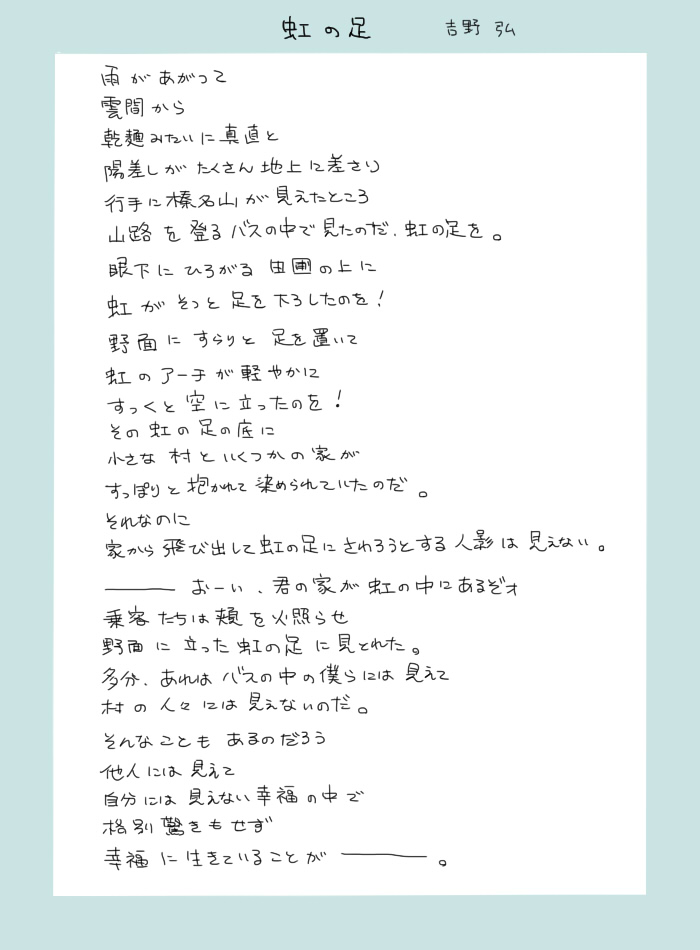 虹の足 吉野 弘
雨があがって
雲間から
乾麺みたいに真直と
陽差しがたくさん地上に差さり
行手に榛名山が見えたところ
山路を登るバスの中で見たのだ、虹の足を。
眼下にひろがる田圃の上に
虹がそっと足を下ろしたのを!
野面にすらりと足を置いて
虹のアーチが軽やかに
すっくと空に立ったのを!
その虹の足の底に
小さな村といくつかの家が
すっぽりと抱かれて染められていたのだ。
それなのに
家から飛び出して虹の足にさわろうとする人影は見えない。
―――おーい、君の家が虹の中にあるぞォ
乗客たちは頬を火照らせ
野面に立った虹の足に見とれた。
多分、あれはバスの中の僕らには見えて
村の人々には見えないのだ。
そんなこともあるのだろう
他人には見えて
自分には見えない幸福の中で
格別驚きもせず
幸福に生きていることが―――。